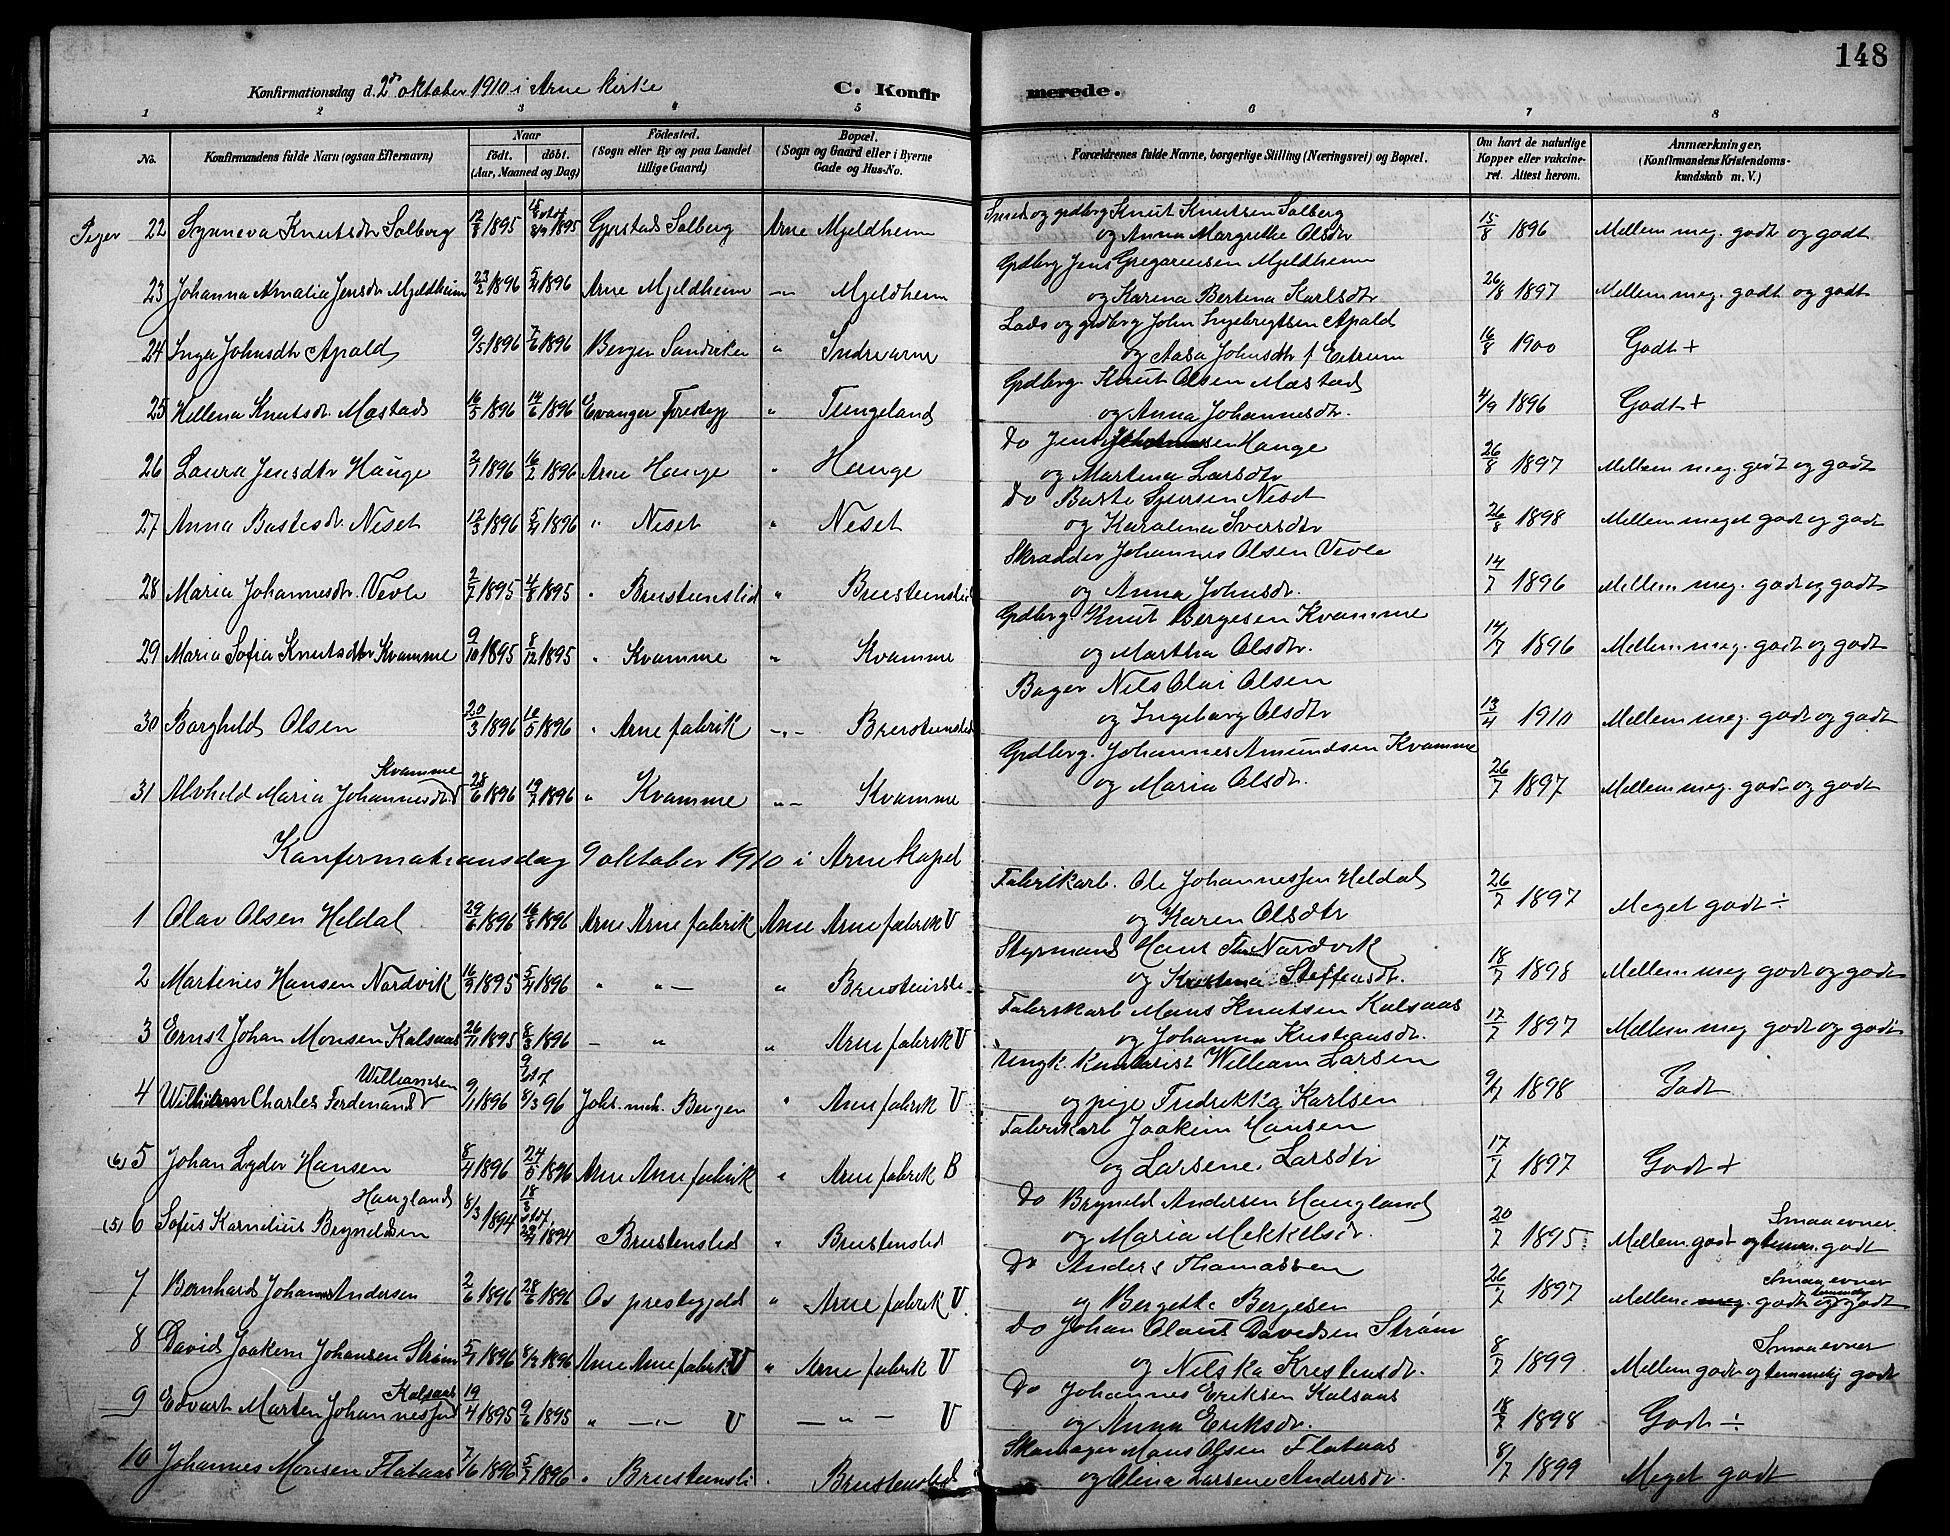 148
Konfirmationsdag d. 2den oktober 1910 i Arne kirke C. Konfirmerede.
1 2 3 4 5 6 7 8
No. Konfirmandens fulde Navn (ogsaa Efternavn) Naar født. døbt. (Aar, Maaned og Dag) Fødested. (Sogn eller By og paa Landet tillige Gaard) Bopæl. (Sogn og Gaard eller i Byerne Gade og Hus-No. Forældrenes fulde Navne, borgerlige Stilling (Næringsvei) og Bopæl. Om havt de naturlige Kopper eller vakcineret. Attest herom. Anmærkninger. (Konfirmandens Kristendomskundskab m. V.)
Piger 22 Synneva Knutsdtr Solberg 12/8 1895 8/9 1895 Gjerstad Solberg Arne Mjeldheim Smed og grdbrg Knut Knutsen Solberg
og Anna Margrethe Olsdtr 15/8 1896 Mellem meg. godt og godt
23 Johanna Amalia Jensdr Mjeldheim 23/2 1896 5/4 1896 Arne Mjeldheim -"- Mjeldheim Grdbrg Jens Gregoriussen Mjeldheim
og Karina Bertina Karlsdtr 26/8 1897 Mellem meg. godt og godt
24 Inga Johnsdtr Apald 9/5 1896 7/6 1896 Bergen Sandviken " Indrearne Lads og grdbrg John Ingebrigtsen Apald
og Aasa Johnsdtr f Eitrum 16/8 1900 Godt +
25 Hellena Knutsdr. Mæstad 16/5 1896 14/6 1896 Evanger Prestegj " Tungeland Grdbrg. Knut Olsen Mæstad
og Anna Johannesdtr. 4/9 1896 Godt +
26 Laura Jensdtr Hauge 2/1 1896 16/2 1896 Arne Hauge " Hauge Do Jens Hauge
og Martina Larsdtr 26/8 1897 Mellem meg. godt og godt
27 Anna Bastesdr. Neset 12/3 1896 5/4 1896 " Neset " Neset Do Baste Sjursen Neset
og Karolina Iversdtr 26/8 1898 Mellem meget godt og godt
28 Maria Johannesdtr. Vevle 2/7 1895 4/8 1895 " Brusteinslid " Brusteinslid Skrædder Johannes Olsen Vevle
og Anna Johnsdr. 14/7 1896 Mellem meg. godt og godt
29 Maria Sofia Knutsdtr Kvamme 9/10 1895 8/12 1895 " Kvamme " Kvamme Grdbrg. Knut Bergesen Kvamme
og Martha Olsdtr. 14/7 1896 Mellem meg. godt og godt
30 Borghild Olsen 20/3 1896 10/5 1896 " Arne fabrik -"- Brusteinslid Bager Nils Olai Olsen
og Ingeborg Olsdtr 13/4 1910 Mellem meg. godt og godt
31 Alvhild Maria Johannesdtr Kvamme 28/6 1896 19/7 1896 " Kvamme "- Kvamme Grdbrg. Johannes Amundsen Kvamme
og Maria Olsdtr. 26/7 1897 Mellem meg. godt og godt
Konfirmationsdag 9 oktober 1910 i Arne kapel
1 Olav Olsen Heldal 29/6 1896 16/8 1896 Arne Arne fabrik Arne Arne fabrik V Fabrikarb. Ole Johannessen Heldal
og Karen Olsdtr 26/7 1897 Meget godt ÷
2 Martines Hansen Nordvik 16/9 1895 5/4 1896 " "- " Brusteinsli. Styrmand Hans Nordvik
og Kristina Steffensdtr. 18/7 1898 Mellem meg godt og godt
3 Ernst Johan Monsen Kalsaas 26/11 1895 8/3 1896 - " " Arne fabrik V Fabrikarb Mons Knutsen Kalsaas
og Johanna Kristiansdr. 17/7 1897 Mellem meg godt og godt
4 Wilhelm Charles Ferdinand Williamsen 9/1 1896 8/3 96 Johs. mh. Bergen " Arne fabrik V Ungk. kontorist William Larsen
og pige Fredrikka Karlsen 9/7 1898 Godt
(6) 5 Johan Lyder Hansen 8/4 1896 24/5 1896 Arne Arne fabrik " Arne fabrik B Fabrikarb Joakim Hansen
og Larsene Larsdtr 17/7 1897 Godt +
(5) 6 Sofus Kornelius Bryneldsen Haugland 8/3 1894 18/3 stdf 22/4 1894 Brustenslid " Brustenslid Do Bryneld Andersen Haugland
og Maria Mikkelsdr. 20/7 1895 Smaa evner. Mellem godt og temm. godt
7 Bernhard Johan Andersen 2/6 1896 28/6 1896 Os prestegjeld " Arne fabrik V. Do Anders Thomassen
og Bergette Bergesen 26/7 1897 Smaa evner Mellem meg. godt og temmelig godt
8 David Joakim Johansen Strøm 5/1 1896 8/2 1896 Arne Arne fabrik V " Arne fabrik V Do Johan Olaus Davidsen Strøm
og Nilska Kristensdtr. 8/7 1899 Smaa evner Mellem godt og temmelig godt
9 Edvart Marten Johannessen Kalsaas 19/4 1895 9/6 1895 " -"- V -"- V Do Johannes Eriksen Kalsaas
og Anna Eriksdr. 18/7 1898 Godt ÷
10 Johannes Monsen Flataas 7/6 1896 5/7 1896 " Brusteinsli " Brusteinslid Skomager Mons Olsen Flataas
og Olina Larsene Andersdr. 8/7 1899 Meget godt